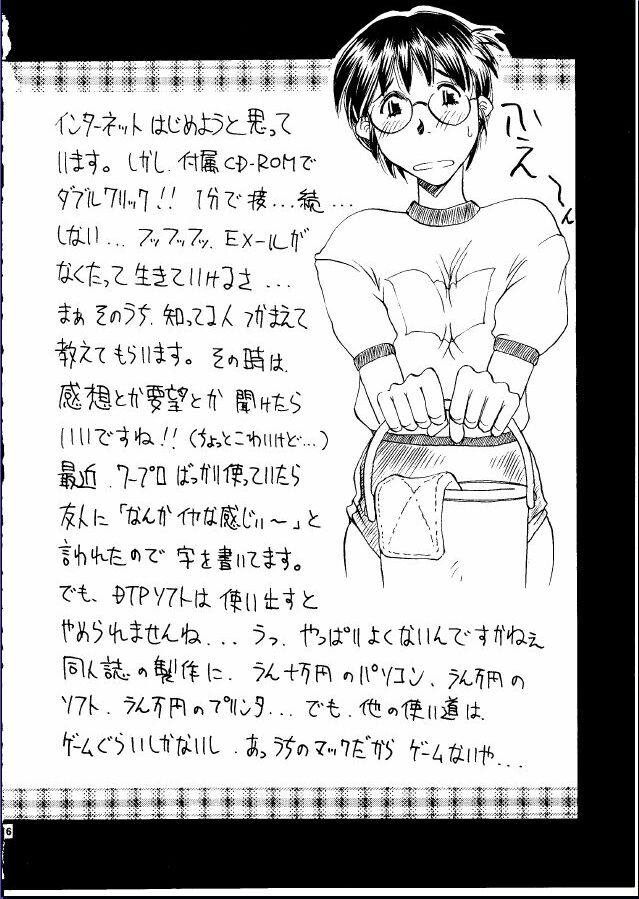 インターネットはじめようと思って
います。しかし、付属CD-ROMで
ダブルクリック!! 1分で接...続...
しない... フッフッフッ、EX-ルが
なくたって生きていけるさ...
まぁ そのうち、知ってる人 つかまえて
教えてもらいます。その時は、
感想とか要望とか 聞けたら
いいですね!!(ちょっとこわいけど...)
最近、ワープロばっかり使っていたら
友人に「なんかイヤな感じぃ〜」と
言われたので 字を書いてます。
でも、DTPソフトは 使い出すと
やめられませんね... うっ、やっぱりよくないんですかねぇ
同人誌の製作に、うん十万円のパソコン、うん万円の
ソフト、うん万円のプリンタ... でも、他の使い道は
ゲームぐらいしかないし、あっうちのマックだから ゲームないや...
ふえ〜ん
16